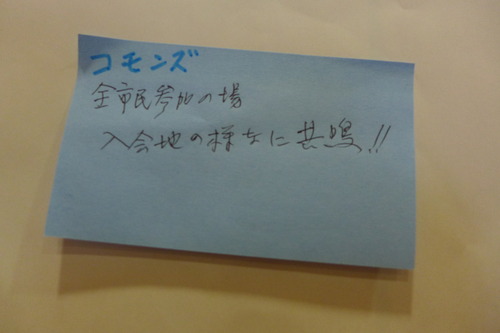 コモンズ
全市民参加の場
入会地の様なに共鳴!!